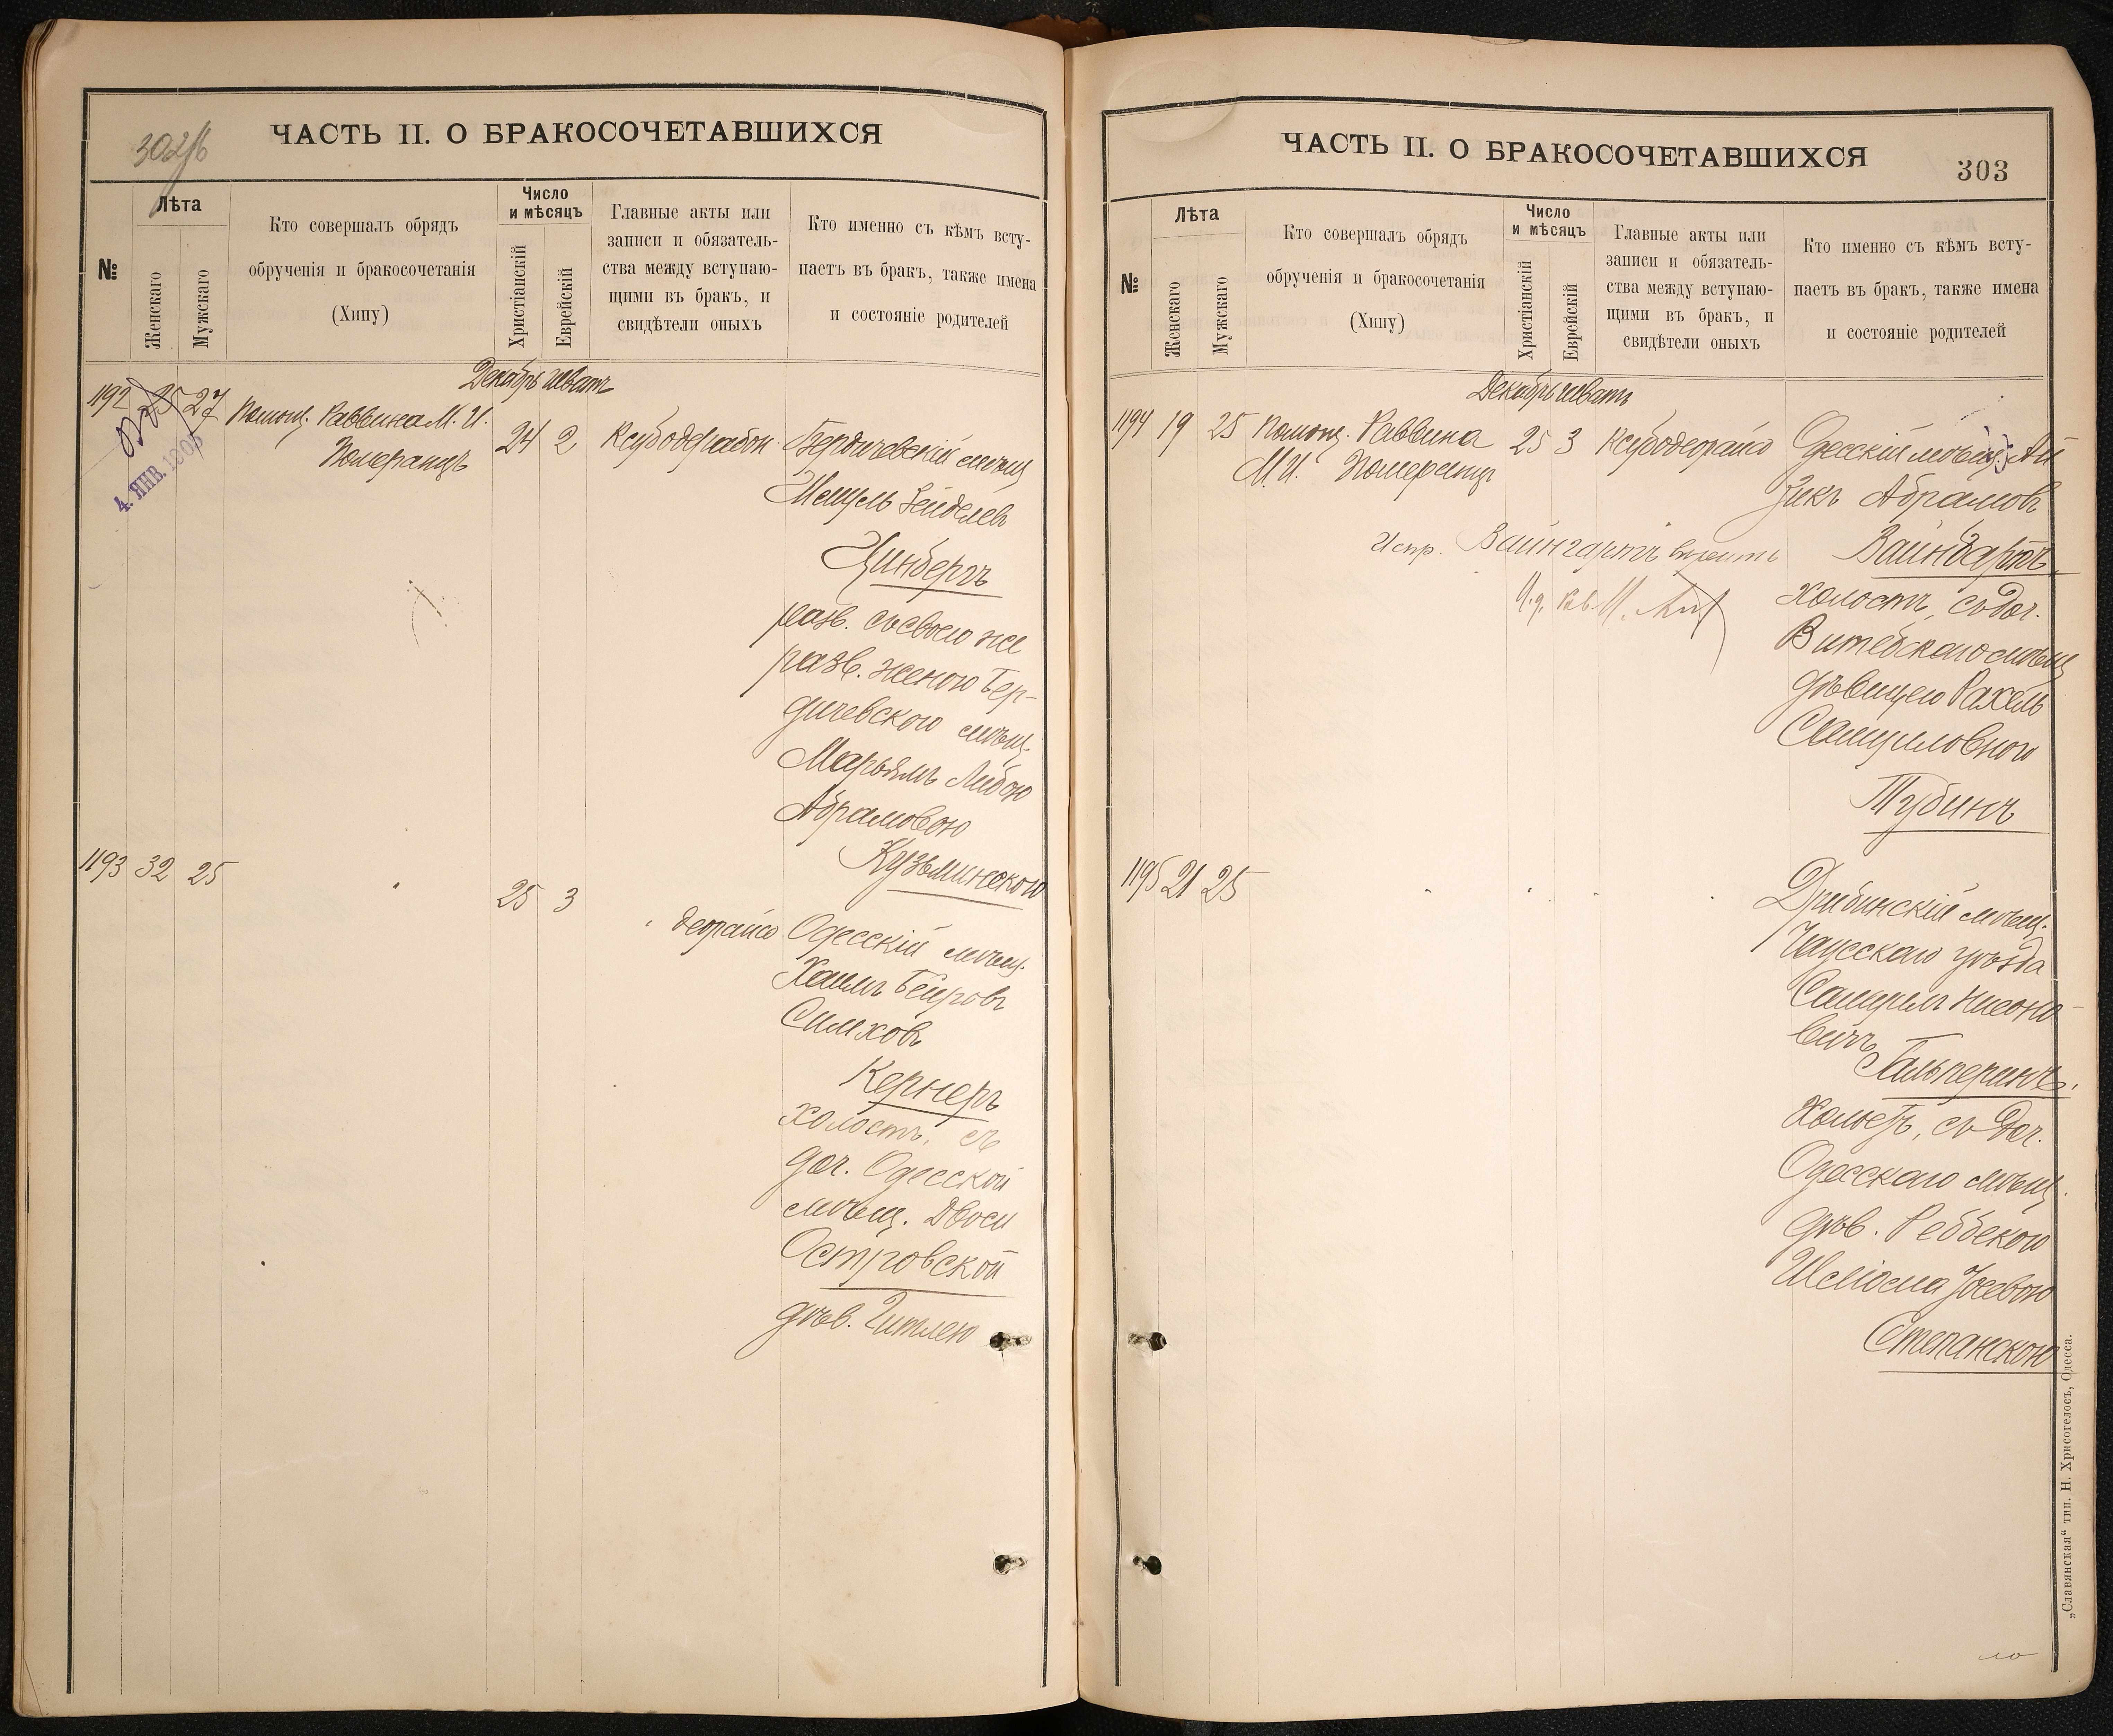 302/б
ЧАСТЬ II. О БРАКОСОЧЕТАВШИХСЯ
№
Лѣта
Женскаго
Мужскаго
Кто совершалъ обрядъ
обрученія и бракосочетанія
(Хипу)
Число
и мѣсяцъ
Христіанскій
Еврейскій
Главные акты или
записи и обязатель-
ства между вступаю-
щими въ бракъ, и
свидѣтели оныхъ
Кто именно съ кѣмъ всту-
паетъ въ бракъ, также имена
и состояніе родителей
Декабрь шватъ
1192 25 27 Помощ. Раввина М. И.
Померанцъ
24 2
4. ЯНВ. 190
Бердичевскій мѣщ.
Зейделевъ
Цинбергъ
разв. со своею же
разв. женою Бер-
дичевского мѣщ.
Марьямъ Либою
Абрамовою
Кузьминскою
1193 32 25
25 3
деорайсо
Одесскій мѣщ.
Хаимъ Беировъ
Симховъ
Кернеръ
холостъ, съ
доч. Одесской
мѣщ. Двоси
Островской
дѣв. Гитлею
ЧАСТЬ II. О БРАКОСОЧЕТАВШИХСЯ
303
№
Лѣта
Женскаго
Мужскаго
Кто совершалъ обрядъ
обрученія и бракосочетанія
(Хипу)
Число
и мѣсяцъ
Христіанскій
Еврейскій
Главные акты или
записи и обязатель-
ства между вступаю-
щими въ бракъ, и
свидѣтели оныхъ
Кто именно съ кѣмъ всту-
паетъ въ бракъ, также имена
и состояніе родителей
Декабрь шватъ
1194 19 25 Помощ. Раввина
М. И. Померанцъ
25 3 Ксубодеорайсо
Одесскій мѣщ. Ай
зикъ Абрамовъ
Вайнгартъ
Испр. Вайнгартъ вѣрить
холостъ, съ доч.
Витебскаго мѣщ.
дѣвицею Рахель
Самуиловною
Тубинъ
1195 21 25
Дрибинскій мѣщ.
Чаусскаго уѣзда
Самуилъ Нисоно-
вичъ
Гальперинъ.
холостъ, съ доч.
Одесскаго мѣщ.
дѣв. Реббекою
Шліома Іосевою
Степанскою
„Славянская“ тип. Н. Хрисогелосъ, Одесса.